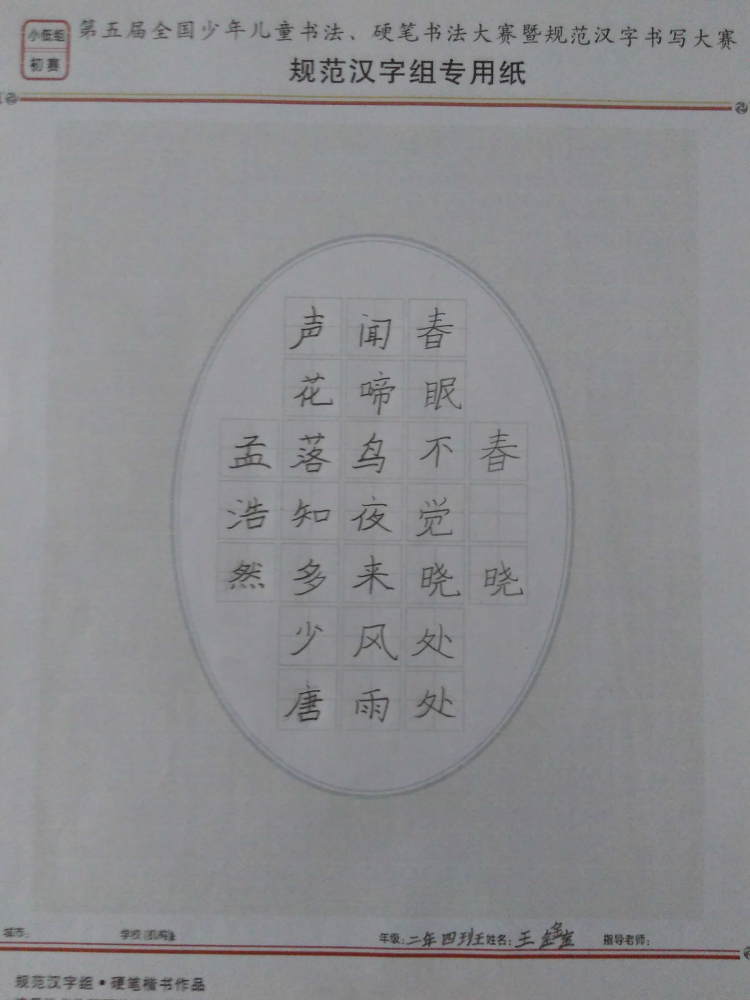 小低组
初赛
第五届全国少年儿童书法、硬笔书法大赛暨规范汉字书写大赛
规范汉字组专用纸
春晓
春眠不觉晓处处
闻啼鸟夜来风雨
声花落知多少唐
孟浩然
城市: 学校(机构): 年级:二年四班王姓名:王鑫 指导老师:
规范汉字组·硬笔楷书作品